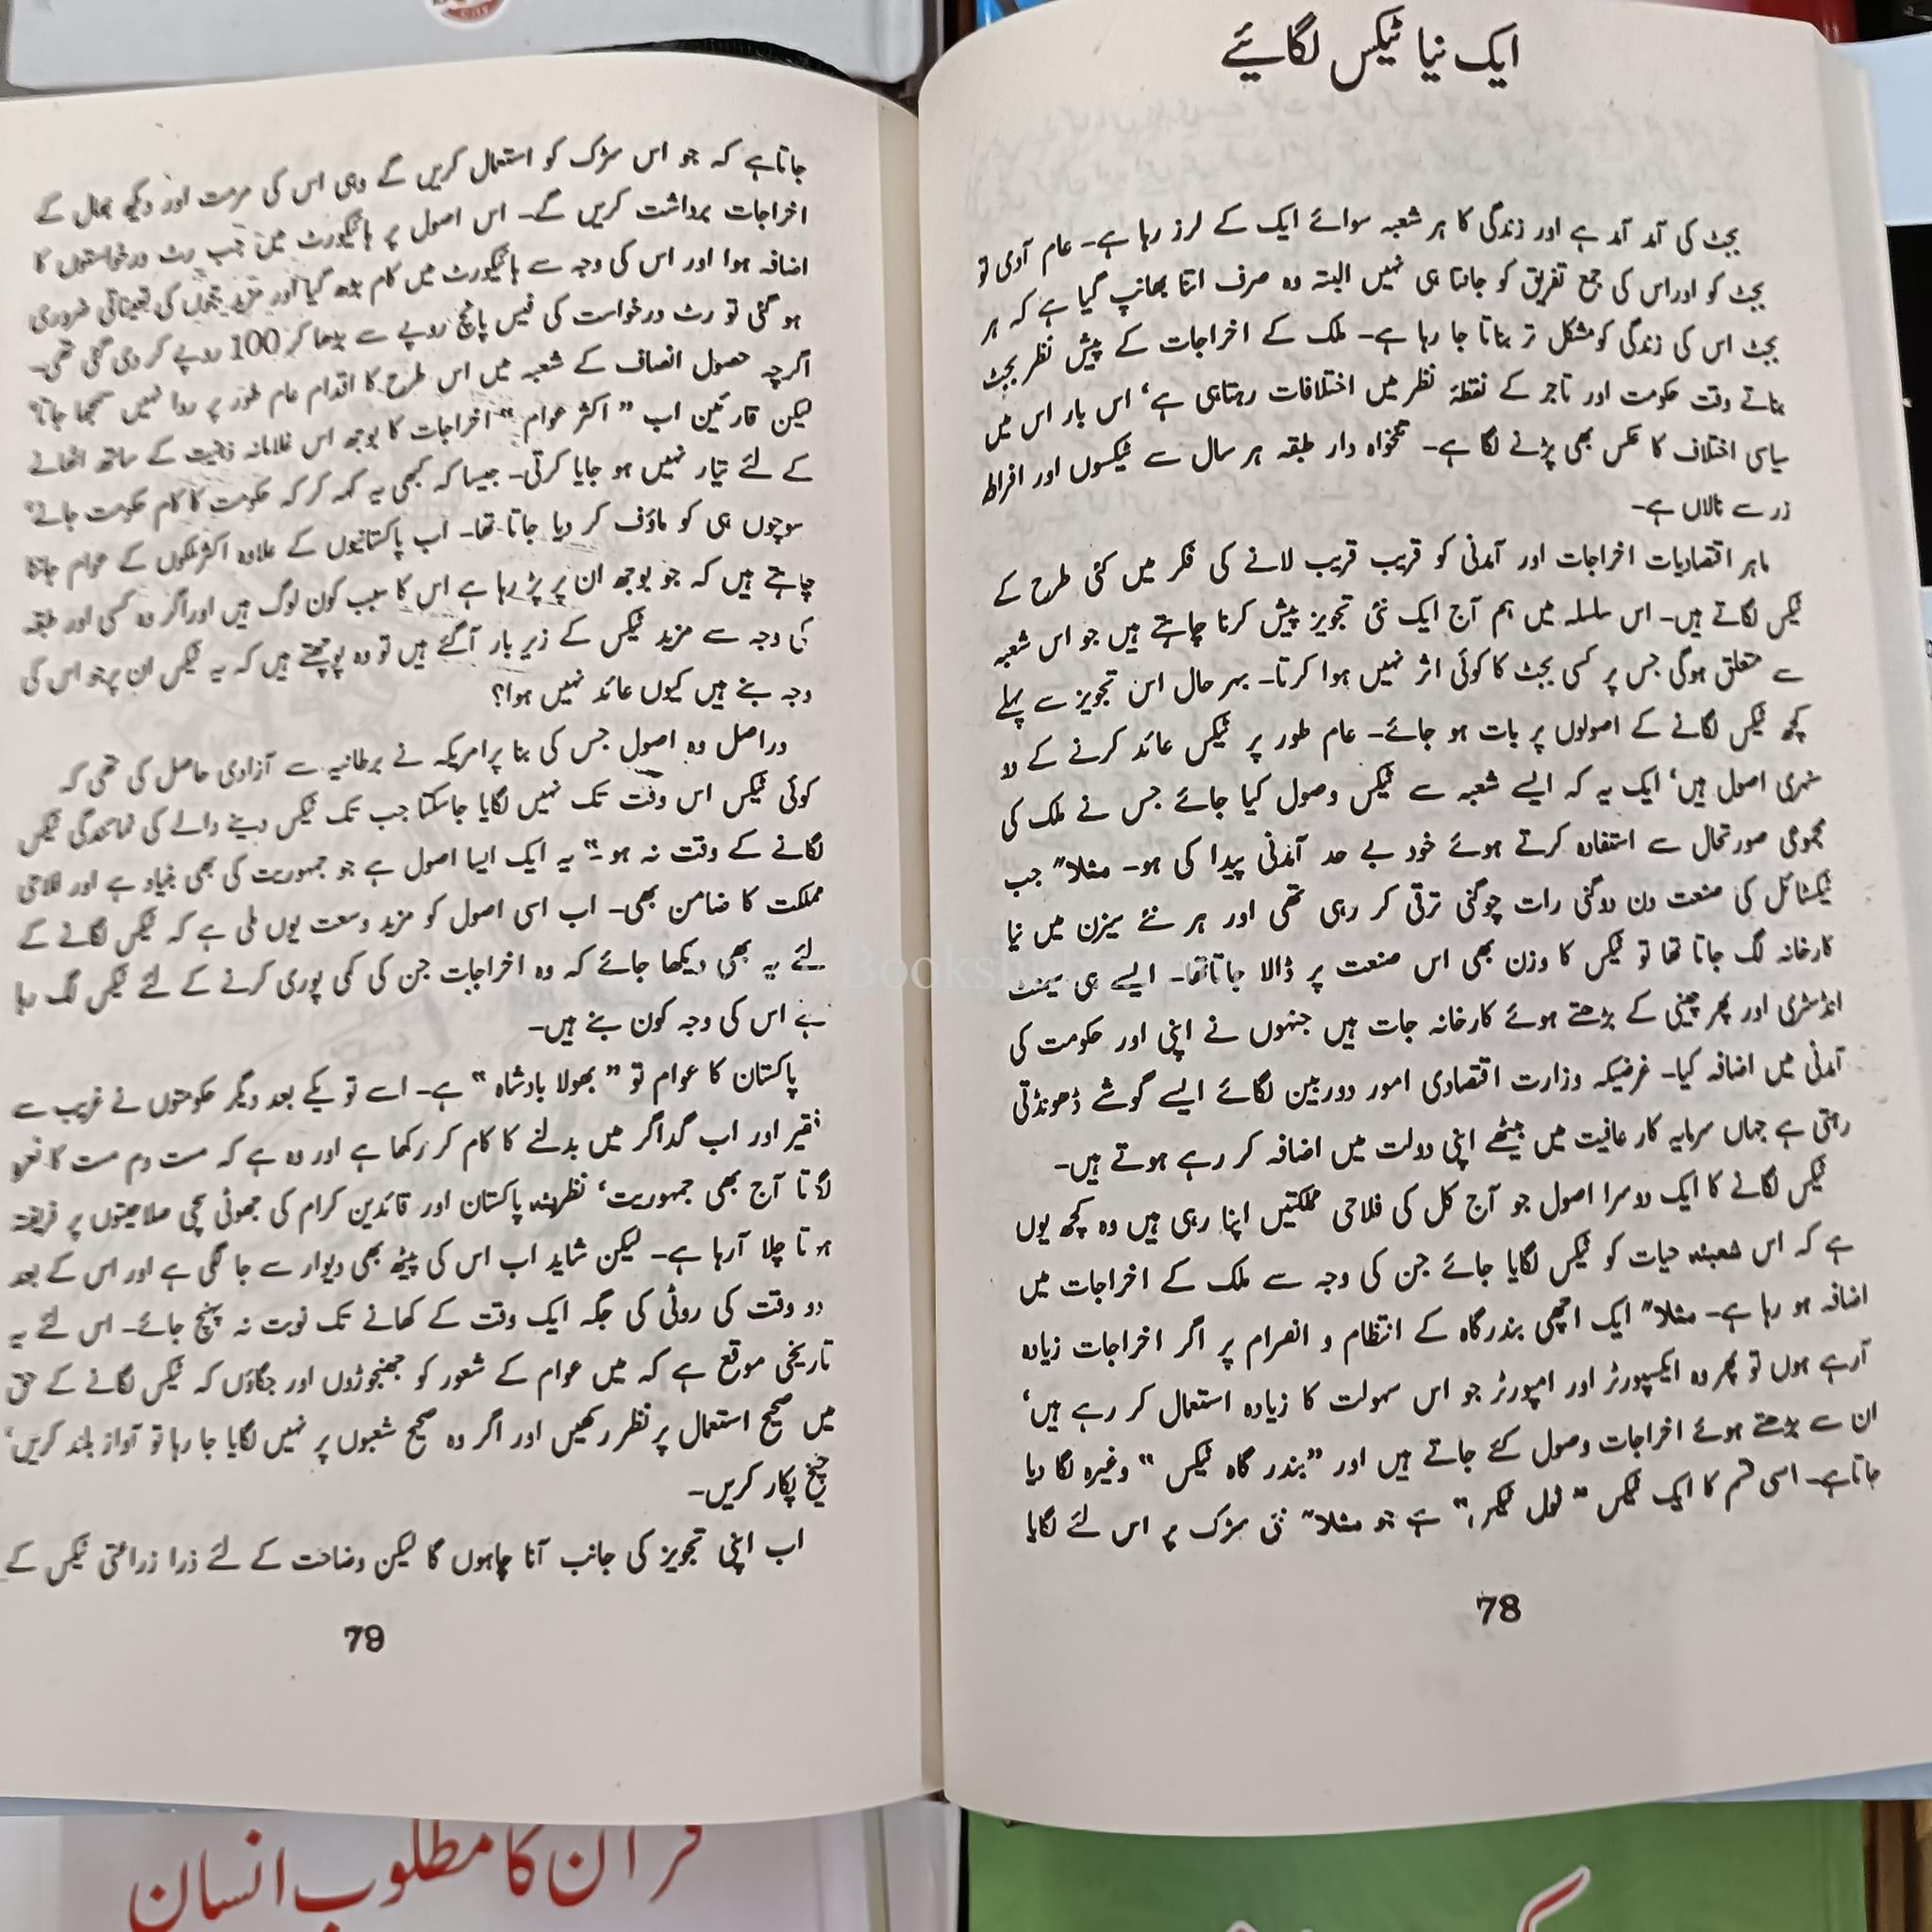 ایک نیا ٹیکس لگائیے
بجٹ کی آمد آمد ہے اور زندگی کا ہر شعبہ سوائے ایک کے لرز رہا ہے۔ عام آدمی تو
بجٹ کو اور اس کی جمع تفریق کو جانتا ہی نہیں البتہ وہ صرف اتنا بھانپ گیا ہے کہ ہر
بجٹ اس کی زندگی کو مشکل تر بناتا جا رہا ہے۔ ملک کے اخراجات کے پیش نظر بجٹ
بناتے وقت حکومت اور تاجر کے نقطۂ نظر میں اختلافات رہتا ہی ہے، اس بار اس میں
سیاسی اختلاف کا عکس بھی پڑنے لگا ہے۔ تنخواہ دار طبقہ ہر سال سے ٹیکسوں اور افراط
زر سے نالاں ہے۔
ماہر اقتصادیات اخراجات اور آمدنی کو قریب قریب لانے کی فکر میں کئی طرح کے
ٹیکس لگاتے ہیں۔ اس سلسلہ میں ہم آج ایک نئی تجویز پیش کرنا چاہتے ہیں جو اس شعبہ
سے متعلق ہوگی جس پر کسی بجٹ کا کوئی اثر نہیں ہوا کرتا۔ بہر حال اس تجویز سے پہلے
کچھ ٹیکس لگانے کے اصولوں پر بات ہو جائے۔ عام طور پر ٹیکس عائد کرنے کے دو
سنہری اصول ہیں، ایک یہ کہ ایسے شعبہ سے ٹیکس وصول کیا جائے جس نے ملک کی
مجموعی صورتحال سے استفادہ کرتے ہوئے خود بے حد آمدنی پیدا کی ہو۔ مثلاً جب
ٹیکسٹائل کی صنعت دن دوگنی رات چوگنی ترقی کر رہی تھی اور ہر نئے سیزن میں نیا
کارخانہ لگ جاتا تھا تو ٹیکس کا وزن بھی اس صنعت پر ڈالا جاتا تھا۔ ایسے ہی سیمنٹ
انڈسٹری اور پھر چینی کے بڑھتے ہوئے کارخانہ جات ہیں جنہوں نے اپنی اور حکومت کی
آمدنی میں اضافہ کیا۔ غرضیکہ وزارت اقتصادی امور دوربین لگائے ایسے گوشے ڈھونڈتی
رہتی ہے جہاں سرمایہ کار عافیت میں بیٹھے اپنی دولت میں اضافہ کر رہے ہوتے ہیں۔
ٹیکس لگانے کا ایک دوسرا اصول جو آج کل کی فلاحی مملکتیں اپنا رہی ہیں وہ کچھ یوں
ہے کہ اس شعبۂ حیات کو ٹیکس لگایا جائے جن کی وجہ سے ملک کے اخراجات میں
اضافہ ہو رہا ہے۔ مثلاً ایک اچھی بندرگاہ کے انتظام و انصرام پر اگر اخراجات زیادہ
آرہے ہوں تو پھر وہ ایکسپورٹر اور امپورٹر جو اس سہولت کا زیادہ استعمال کر رہے ہیں،
ان سے بڑھتے ہوئے اخراجات وصول کئے جاتے ہیں اور "بندر گاہ ٹیکس" وغیرہ لگا دیا
جاتا ہے۔ اسی قسم کا ایک ٹیکس "ٹول ٹیکس" ہے جو مثلاً نئی سڑک پر اس لئے لگایا
78
جاتا ہے کہ جو اس سڑک کو استعمال کریں گے وہی اس کی مرمت اور دیکھ بھال کے
اخراجات برداشت کریں گے۔ اس اصول پر ہائیکورٹ میں جب رٹ درخواستوں کا
اضافہ ہوا اور اس کی وجہ سے ہائیکورٹ میں کام بڑھ گیا اور مزید ججوں کی تعیناتی ضروری
ہو گئی تو رٹ درخواست کی فیس پانچ روپے سے بڑھا کر 100 روپے کر دی گئی تھی۔
اگرچہ حصول انصاف کے شعبہ میں اس طرح کا اقدام عام طور پر روا نہیں سمجھا جاتا،
لیکن قارئین اب "اکثر عوام" اخراجات کا بوجھ اس غلامانہ ذہنیت کے ساتھ اٹھانے
کے لئے تیار نہیں ہو جایا کرتی۔ جیسا کہ کبھی یہ کہہ کر کہ حکومت کا کام حکومت جانے،
سوچوں ہی کو ماؤف کر دیا جاتا تھا۔ اب پاکستانیوں کے علاوہ اکثر ملکوں کے عوام جاننا
چاہتے ہیں کہ جو بوجھ ان پر پڑ رہا ہے اس کا سبب کون لوگ ہیں اور اگر وہ کسی اور طبقہ
کی وجہ سے مزید ٹیکس کے زیر بار آگئے ہیں تو وہ پوچھتے ہیں کہ یہ ٹیکس ان پر جو اس کی
وجہ بنے ہیں کیوں عائد نہیں ہوا؟
دراصل وہ اصول جس کی بنا پر امریکہ نے برطانیہ سے آزادی حاصل کی تھی کہ
کوئی ٹیکس اس وقت تک نہیں لگایا جاسکتا جب تک ٹیکس دینے والے کی نمائندگی ٹیکس
لگانے کے وقت نہ ہو۔" یہ ایک ایسا اصول ہے جو جمہوریت کی بھی بنیاد ہے اور فلاحی
مملکت کا ضامن بھی۔ اب اسی اصول کو مزید وسعت یوں ملی ہے کہ ٹیکس لگانے کے
لئے یہ بھی دیکھا جائے کہ وہ اخراجات جن کی کمی پوری کرنے کے لئے ٹیکس لگ رہا
ہے اس کی وجہ کون بنے ہیں۔
پاکستان کا عوام تو "بھولا بادشاہ" ہے۔ اسے تو یکے بعد دیگر حکومتوں نے غریب سے
فقیر اور اب گداگر میں بدلنے کا کام کر رکھا ہے اور وہ ہے کہ مست دم مست کا نعرہ
لگاتا آج بھی جمہوریت، نظریۂ پاکستان اور قائدین کرام کی جھوٹی سچی صلاحیتوں پر فریفتہ
ہوتا چلا آرہا ہے۔ لیکن شاید اب اس کی پیٹھ بھی دیوار سے جا لگی ہے اور اس کے بعد
دو وقت کی روٹی کی جگہ ایک وقت کے کھانے تک نوبت نہ پہنچ جائے۔ اس لئے یہ
تاریخی موقع ہے کہ میں عوام کے شعور کو جھنجوڑوں اور جگاؤں کہ ٹیکس لگانے کے حق
میں صحیح استعمال پر نظر رکھیں اور اگر وہ صحیح شعبوں پر نہیں لگایا جا رہا تو آواز بلند کریں،
چیخ پکار کریں۔
اب اپنی تجویز کی جانب آنا چاہوں گا لیکن وضاحت کے لئے ذرا زراعتی ٹیکس کے
79
قرآن کا مطلوب انسان